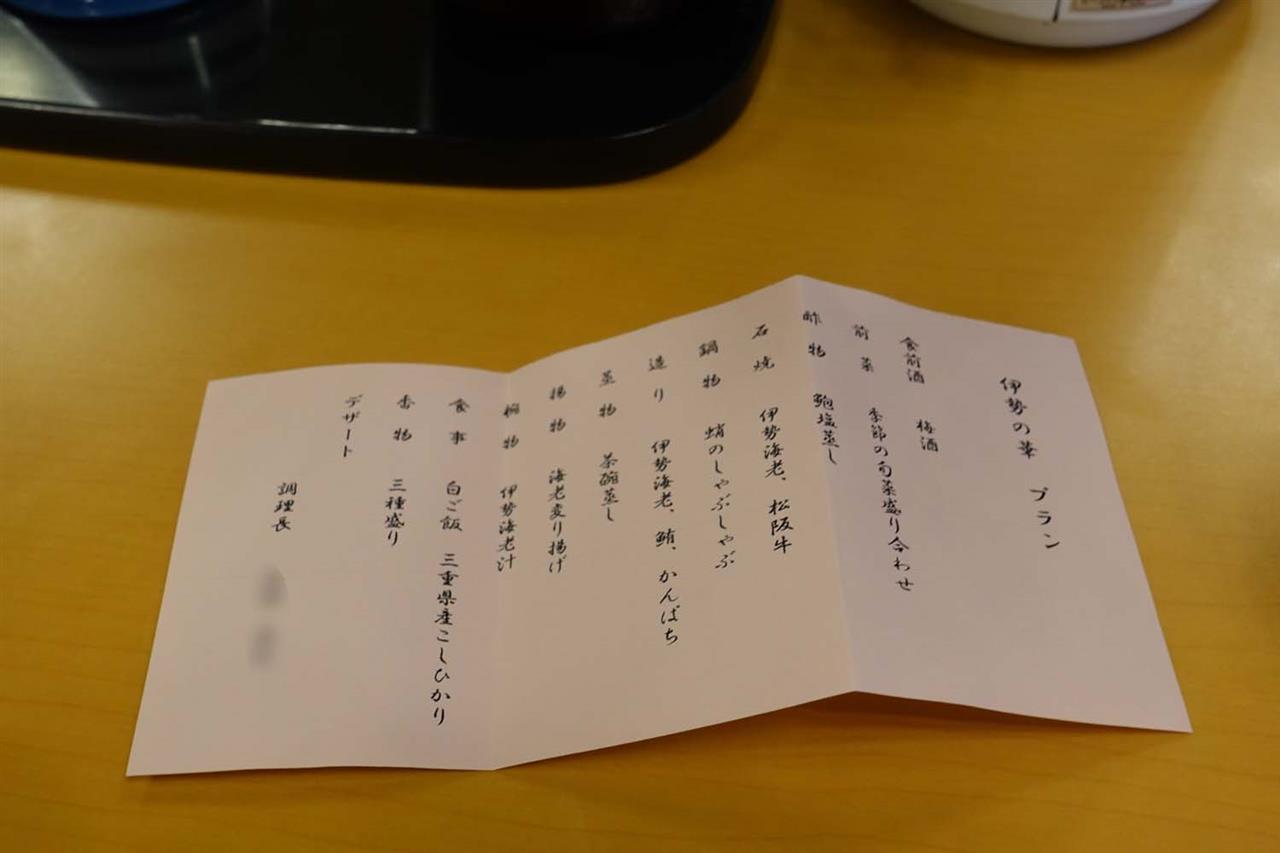 伊勢の華 プラン
食前酒 梅酒
前菜 季節の旬菜盛り合わせ
酢物 鮑塩蒸し
石焼 伊勢海老、松阪牛
鍋物 蛸のしゃぶしゃぶ
造り 伊勢海老、鮪、かんぱち
蒸物 茶碗蒸し
揚物 海老変り揚げ
椀物 伊勢海老汁
食事 白ご飯 三重県産こしひかり
香物 三種盛り
デザート
調理長